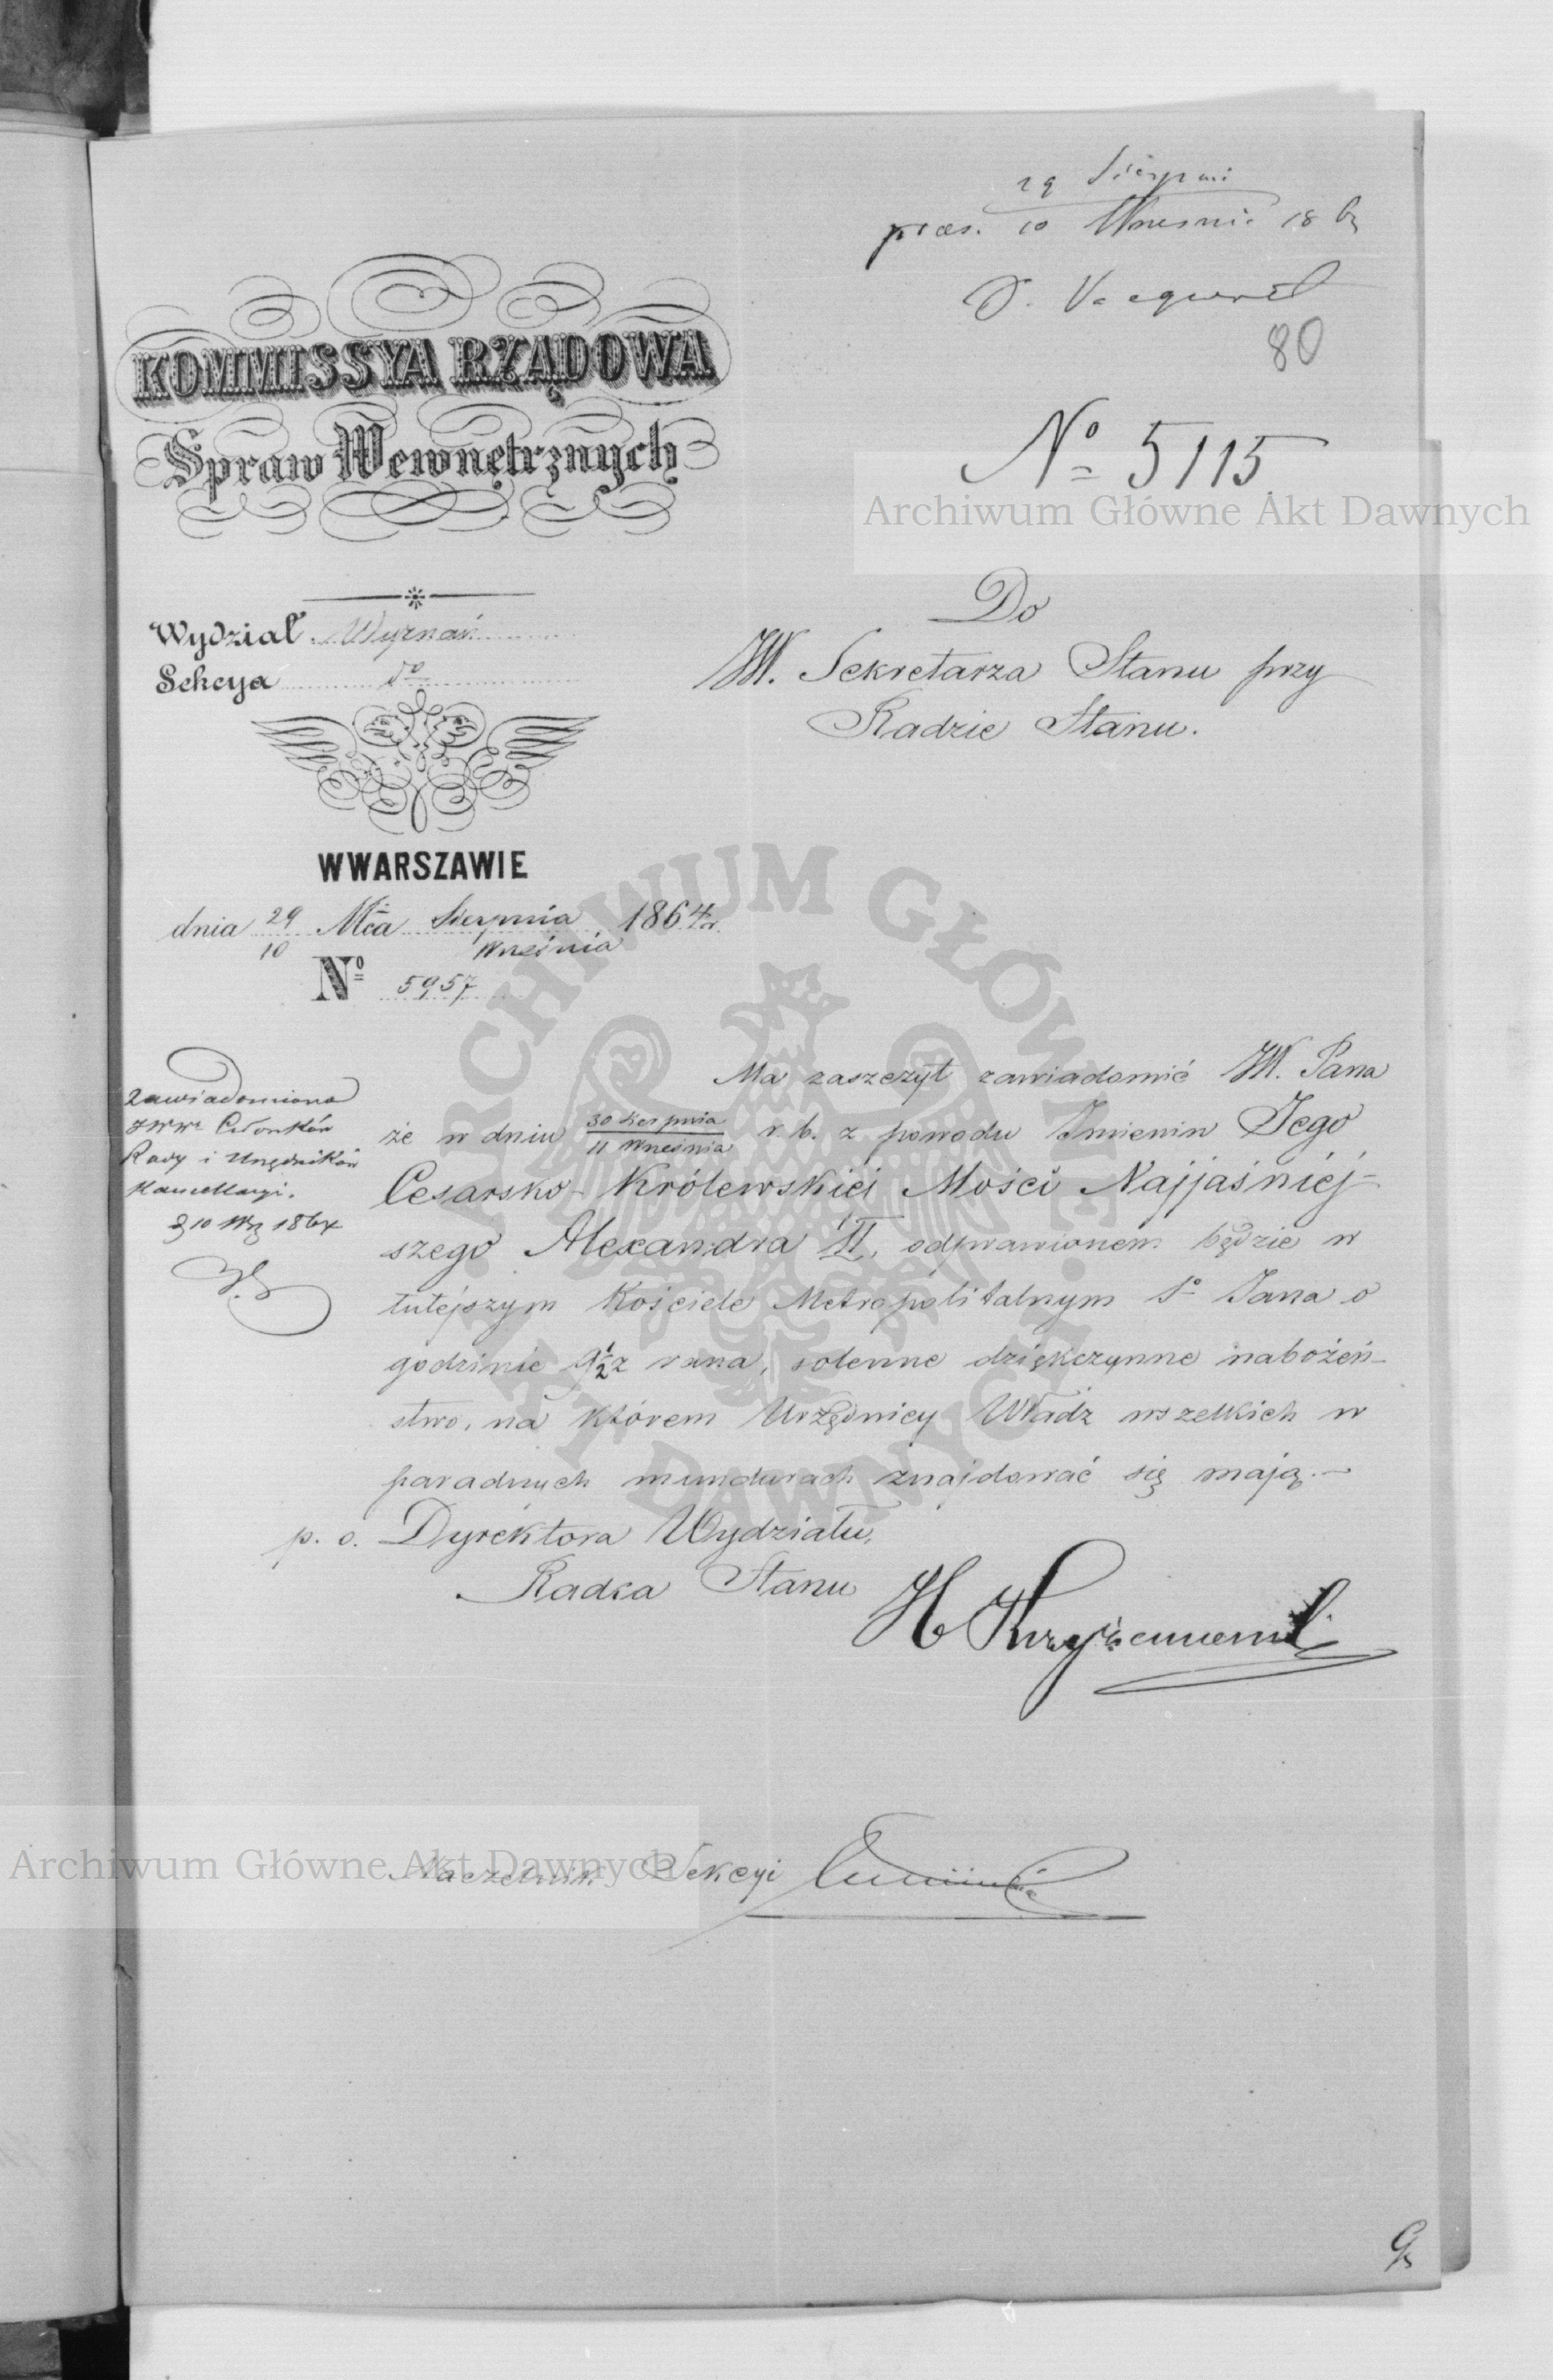 29 Sierpnia
præs. 10 Wrześnie 186
80
KOMMISSYA RZĄDOWA
Spraw Wewnętrznych
No 5115
Archiwum Główne Akt Dawnych
Do
W. Sekretarza Stanu przy
Radzie Stanu.
Wydział Wyznań
Sekcya do
W WARSZAWIE
dnia 29/10 Mca Sierpnia/Września 1864 r.
No 5957
ARCHIWUM GŁÓWNE AKT DAWNYCH
Zawiadomiono
JWW. Członków
Rady i Urzędników
Kancellaryi.
d 10 Wrz 1864
Ma zaszczyt zawiadomić W. Pana
że w dniu 30 Sierpnia/11 Września r. b. z powodu Imienin Jego
Cesarsko-Królewskiéj Mości Najjaśniéj-
szego Alexandra II, odprawionem będzie w
tutejszym Kościele Metropolitalnym So Jana o
godzinie 9 1/2 z rana, solenne dziękczynne nabożeń-
stwo, na którem Urzędnicy Władz wszelkich w
paradnych mundurach znajdować się mają.—
p. o. Dyrektora Wydziału,
Radca Stanu
Archiwum Główne Akt Dawnych
Naczelnik Sekcyi